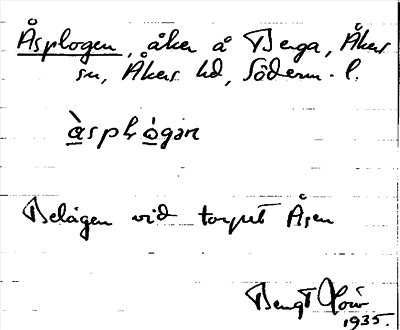 Åsplogen, åker å Berga, Åkers
sn, Åkers hd, Söderm. l.
àsplògan
Belägen vid torpet Åsen
Bengt
1935.